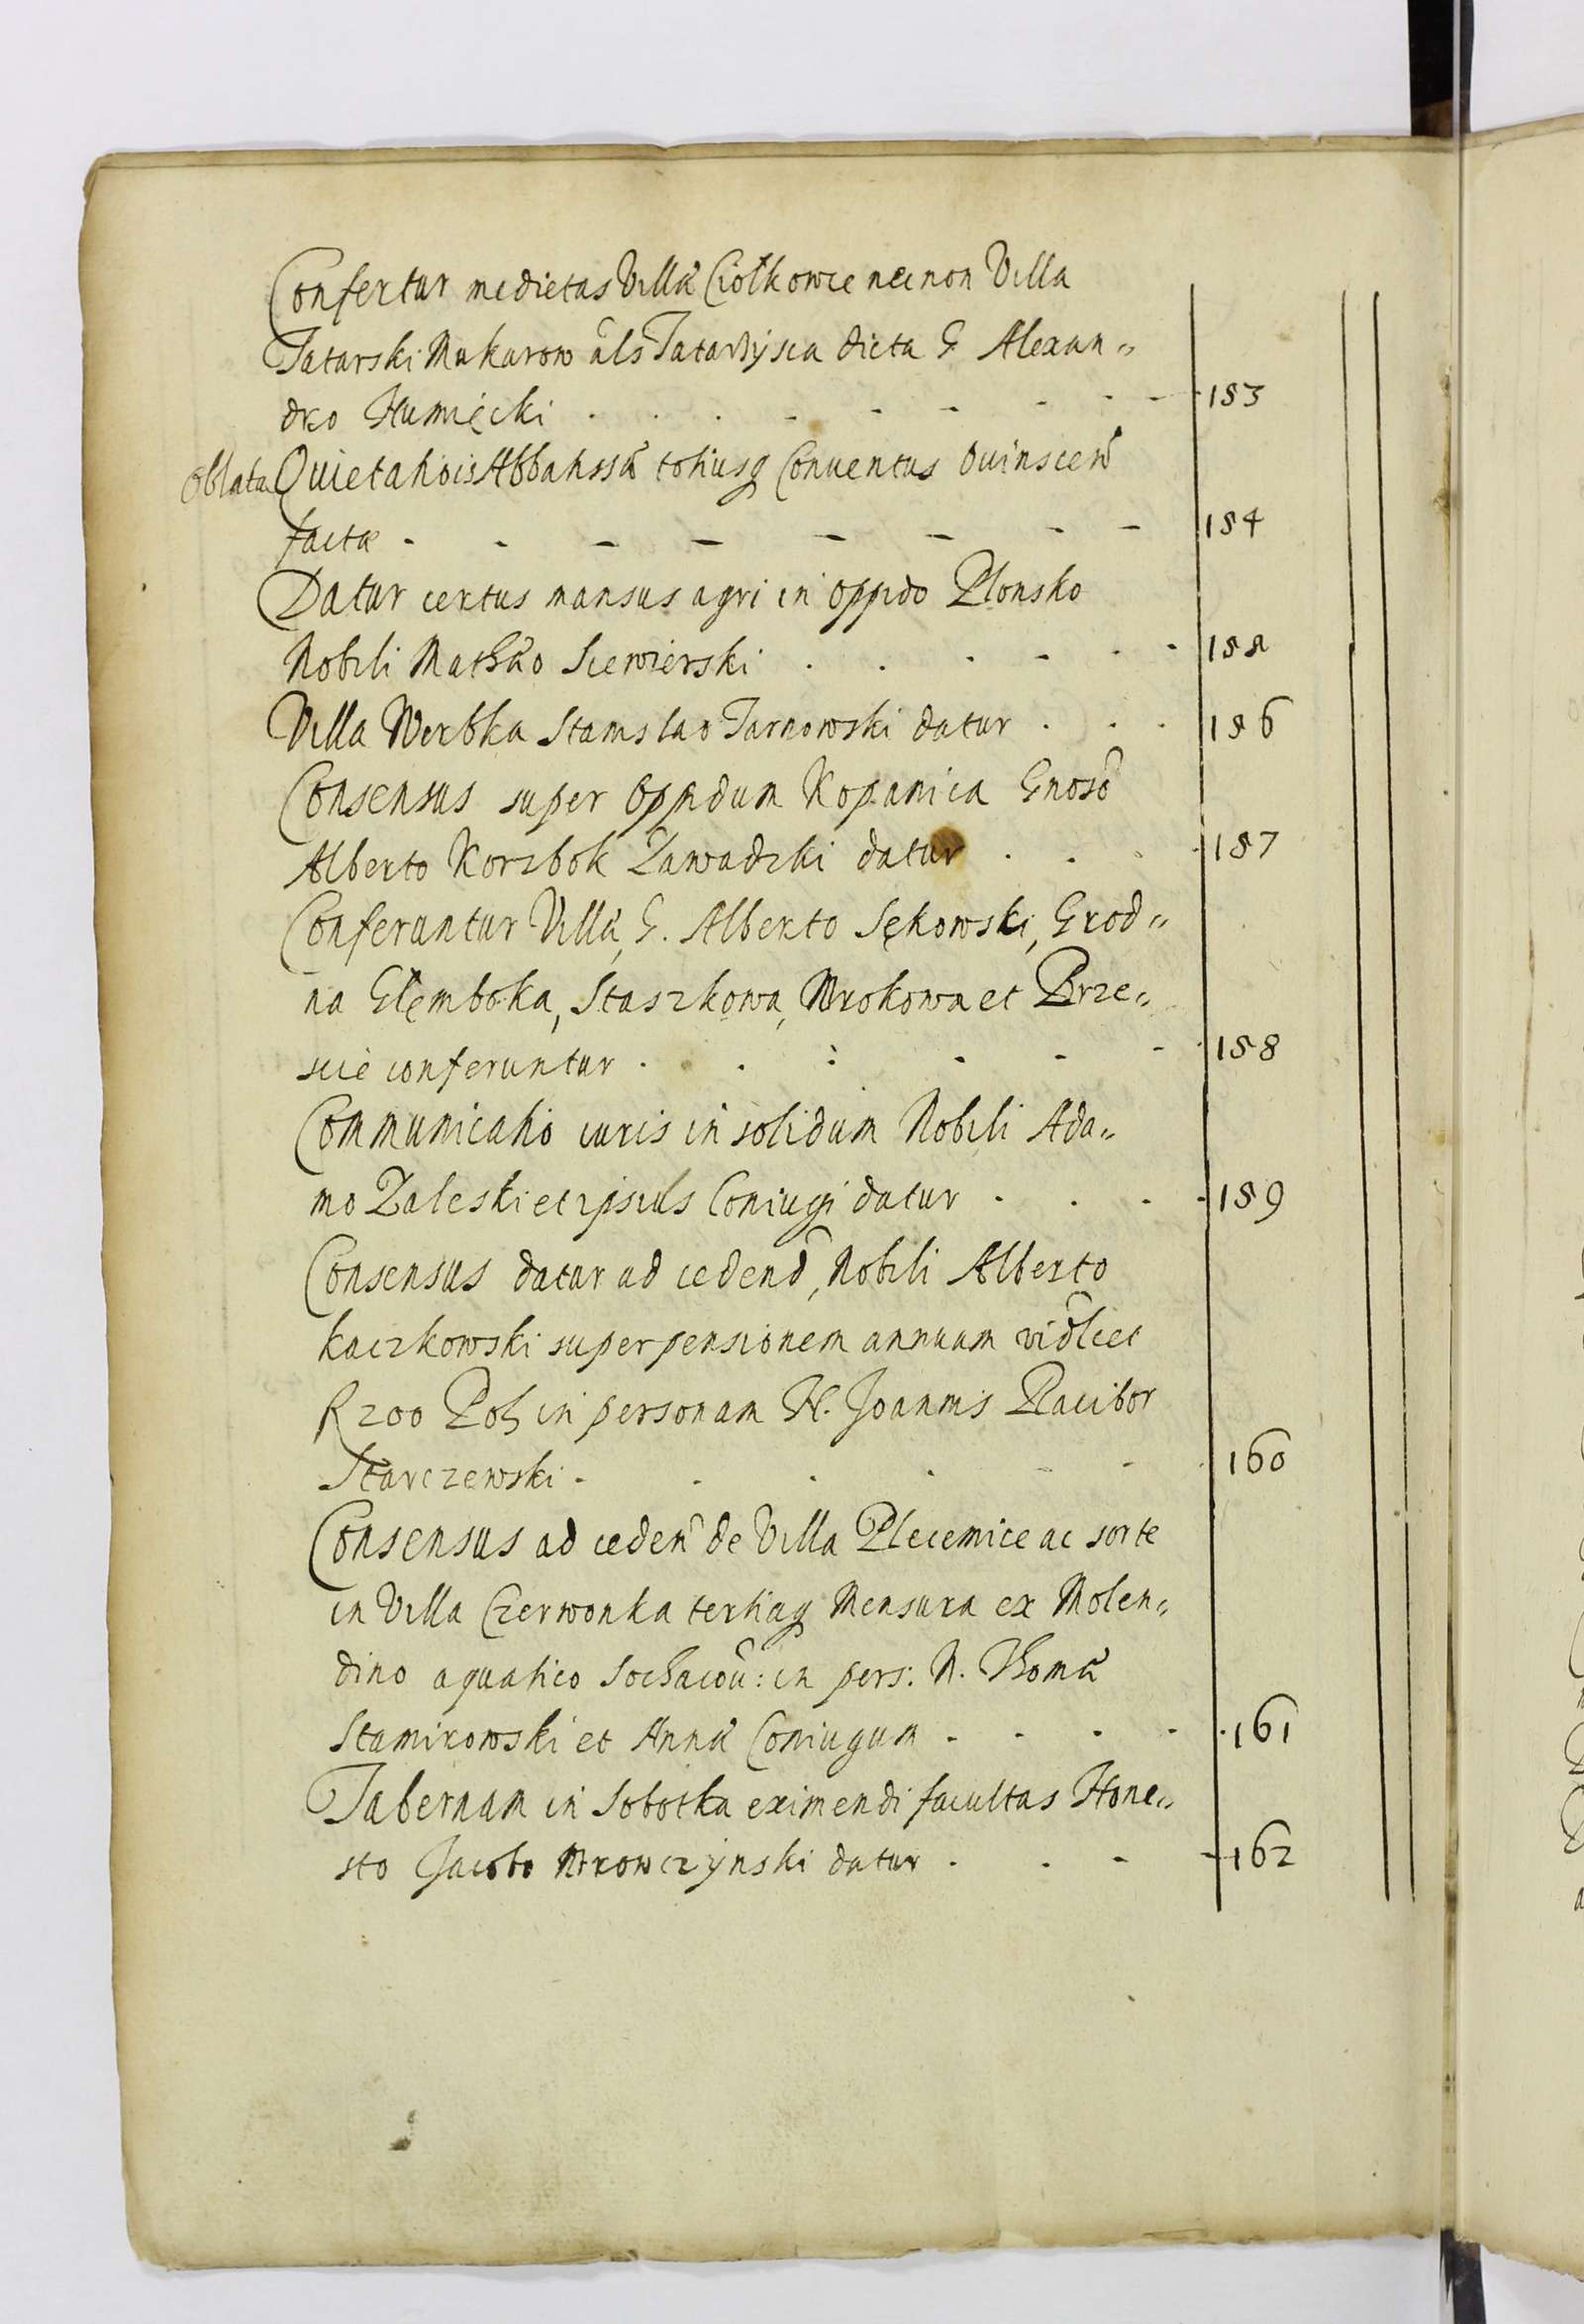 Confertur medietas Villæ Ciołkowce necnon Villa
Tatarski Makarow al̃s Tatarzysca dicta G. Alexan„
dro Humięcki 153
Oblata Quietaõis Abbatissæ totiusq Conuentus Ouinscen̄
factæ 154
Datur certus mansus agri in oppido Plonsko
Nobili Matthæo Siewierski 155
Villa Werbka Stanislao Tarnowski datur 156
Consensus super Oppidum Kopanica Gnoso
Alberto Korzbok Zawadzki datur 157
Conferuntur Villæ, G. Alberto Sękowski, Grod„
na Glęmboka, Staszkowa, Mrokowa et Brze„
scie conferuntur 158
Communicatio iuris in solidum Nobili Ada„
mo Zaleski et ipsius Coniugi datur 159
Consensus datur ad cedend̃, Nobili Alberto
Kaczkowski super pensionem annuam vid̃licet
R 200 Pol in personam N. Joannis Racibor
Starczewski 160
Consensus ad ceden̄ de Villa Plecemice ac sorte
in Villa Czerwonka tertiaq Mensura ex Molen„
dino aquatico Sochacoũ: in pers: N. Thomæ
Stamirowski et Annæ Coniugum 161
Tabernam in Sobotka eximendi facultas Hone„
sto Jacobo Mrowczynski datur 162